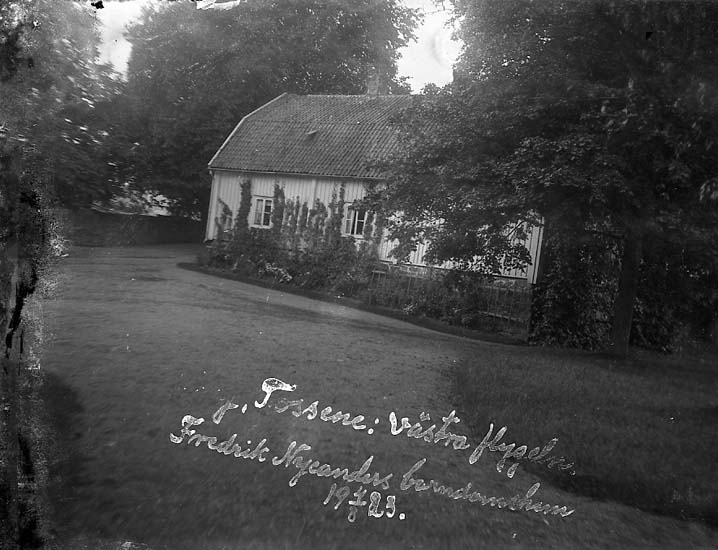 Tossene: Västra flygeln.
Fredrik Nycanders barndomshem
1923.